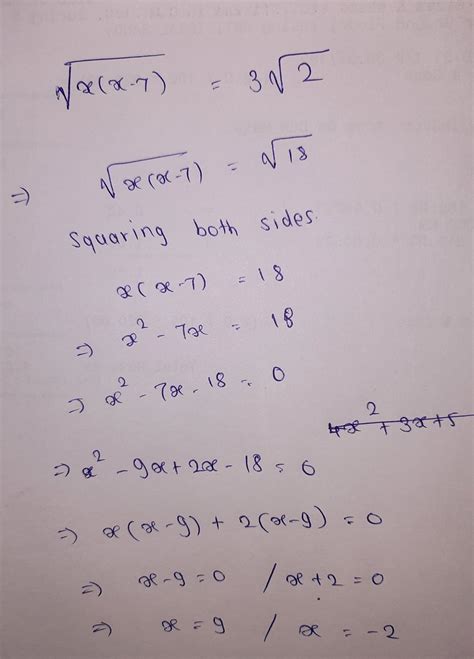 √x(x-7) = 3√2
⇒ √x(x-7) = √18
Squaring both sides.
x(x-7) = 18
⇒ x² - 7x = 18
⇒ x² - 7x - 18 = 0
4x² + 3x + 5
⇒ x² - 9x + 2x - 18 = 0
⇒ x(x-9) + 2(x-9) = 0
⇒ x-9 = 0 / x+2 = 0
⇒ x = 9 / x = -2